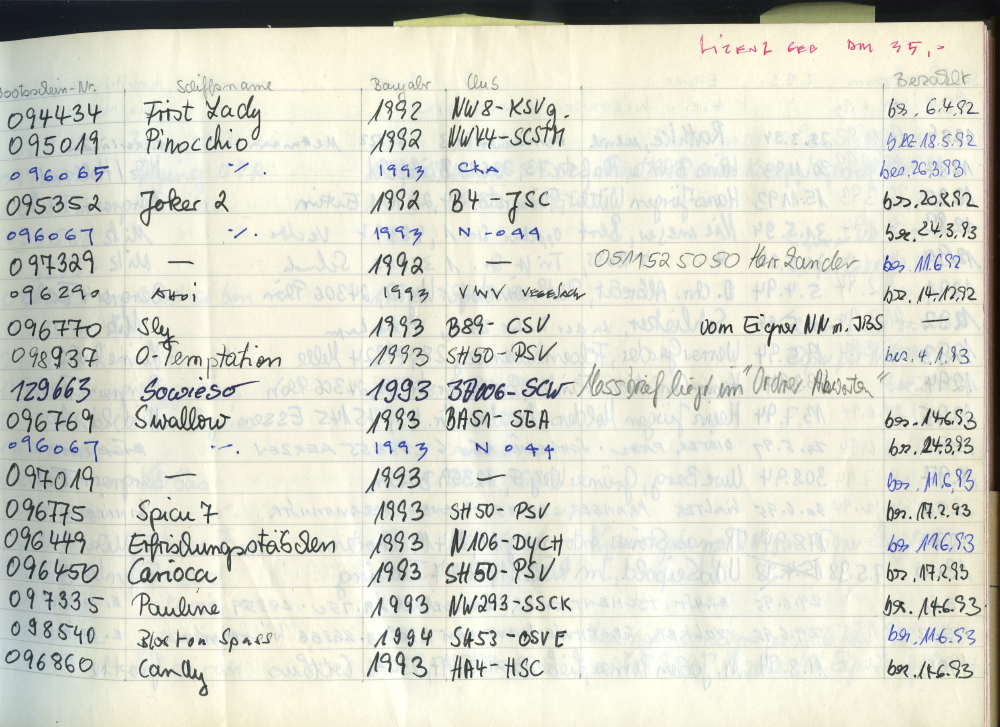 LIZENZ GEB DM 35,-
Bootsschein-Nr. Schiffsname Baujahr Club Bezahlt
094434 First Lady 1992 NW8-KSVg. bez. 6.4.92
095019 Pinocchio 1992 NW44-SCSTM bez 18.5.92
096065 -/. 1993 CHA bez. 26.3.93
095352 Joker 2 1992 B4-JSC bez. 20.8.92
096067 -/. 1993 N-044 bez. 24.3.93
097329 — 1992 — 0511525050 Herr Zander bez. 11.6.92
096290 1993 VWV VEGESACK bez. 14.12.92
096770 Sly 1993 B89-CSV vom Eigner NN m. JBS —
098937 O-Temptation 1993 SH50-PSV bez. 4.1.93
129663 Sowieso 1993 BB006-SCW Messbrief liegt im "Ordner
096769 Swallow 1993 BA51-SGA bez. 14.6.93
096067 -/. 1993 N 044 bez. 24.3.93
097019 — 1993 — bez. 11.6.93
096775 Spicu 7 1993 SH50-PSV bez. 17.2.93
096449 Erfrischungsstäbchen 1993 N106-DYCH bez 11.6.93
096450 Carioca 1993 SH50-PSV bez. 17.2.93
097335 Pauline 1993 NW293-SSCK bez. 14.6.93
098540 1994 SH53-OSVE bez. 11.6.93
096860 Candy 1993 HA4-HSC bez. 14.6.93